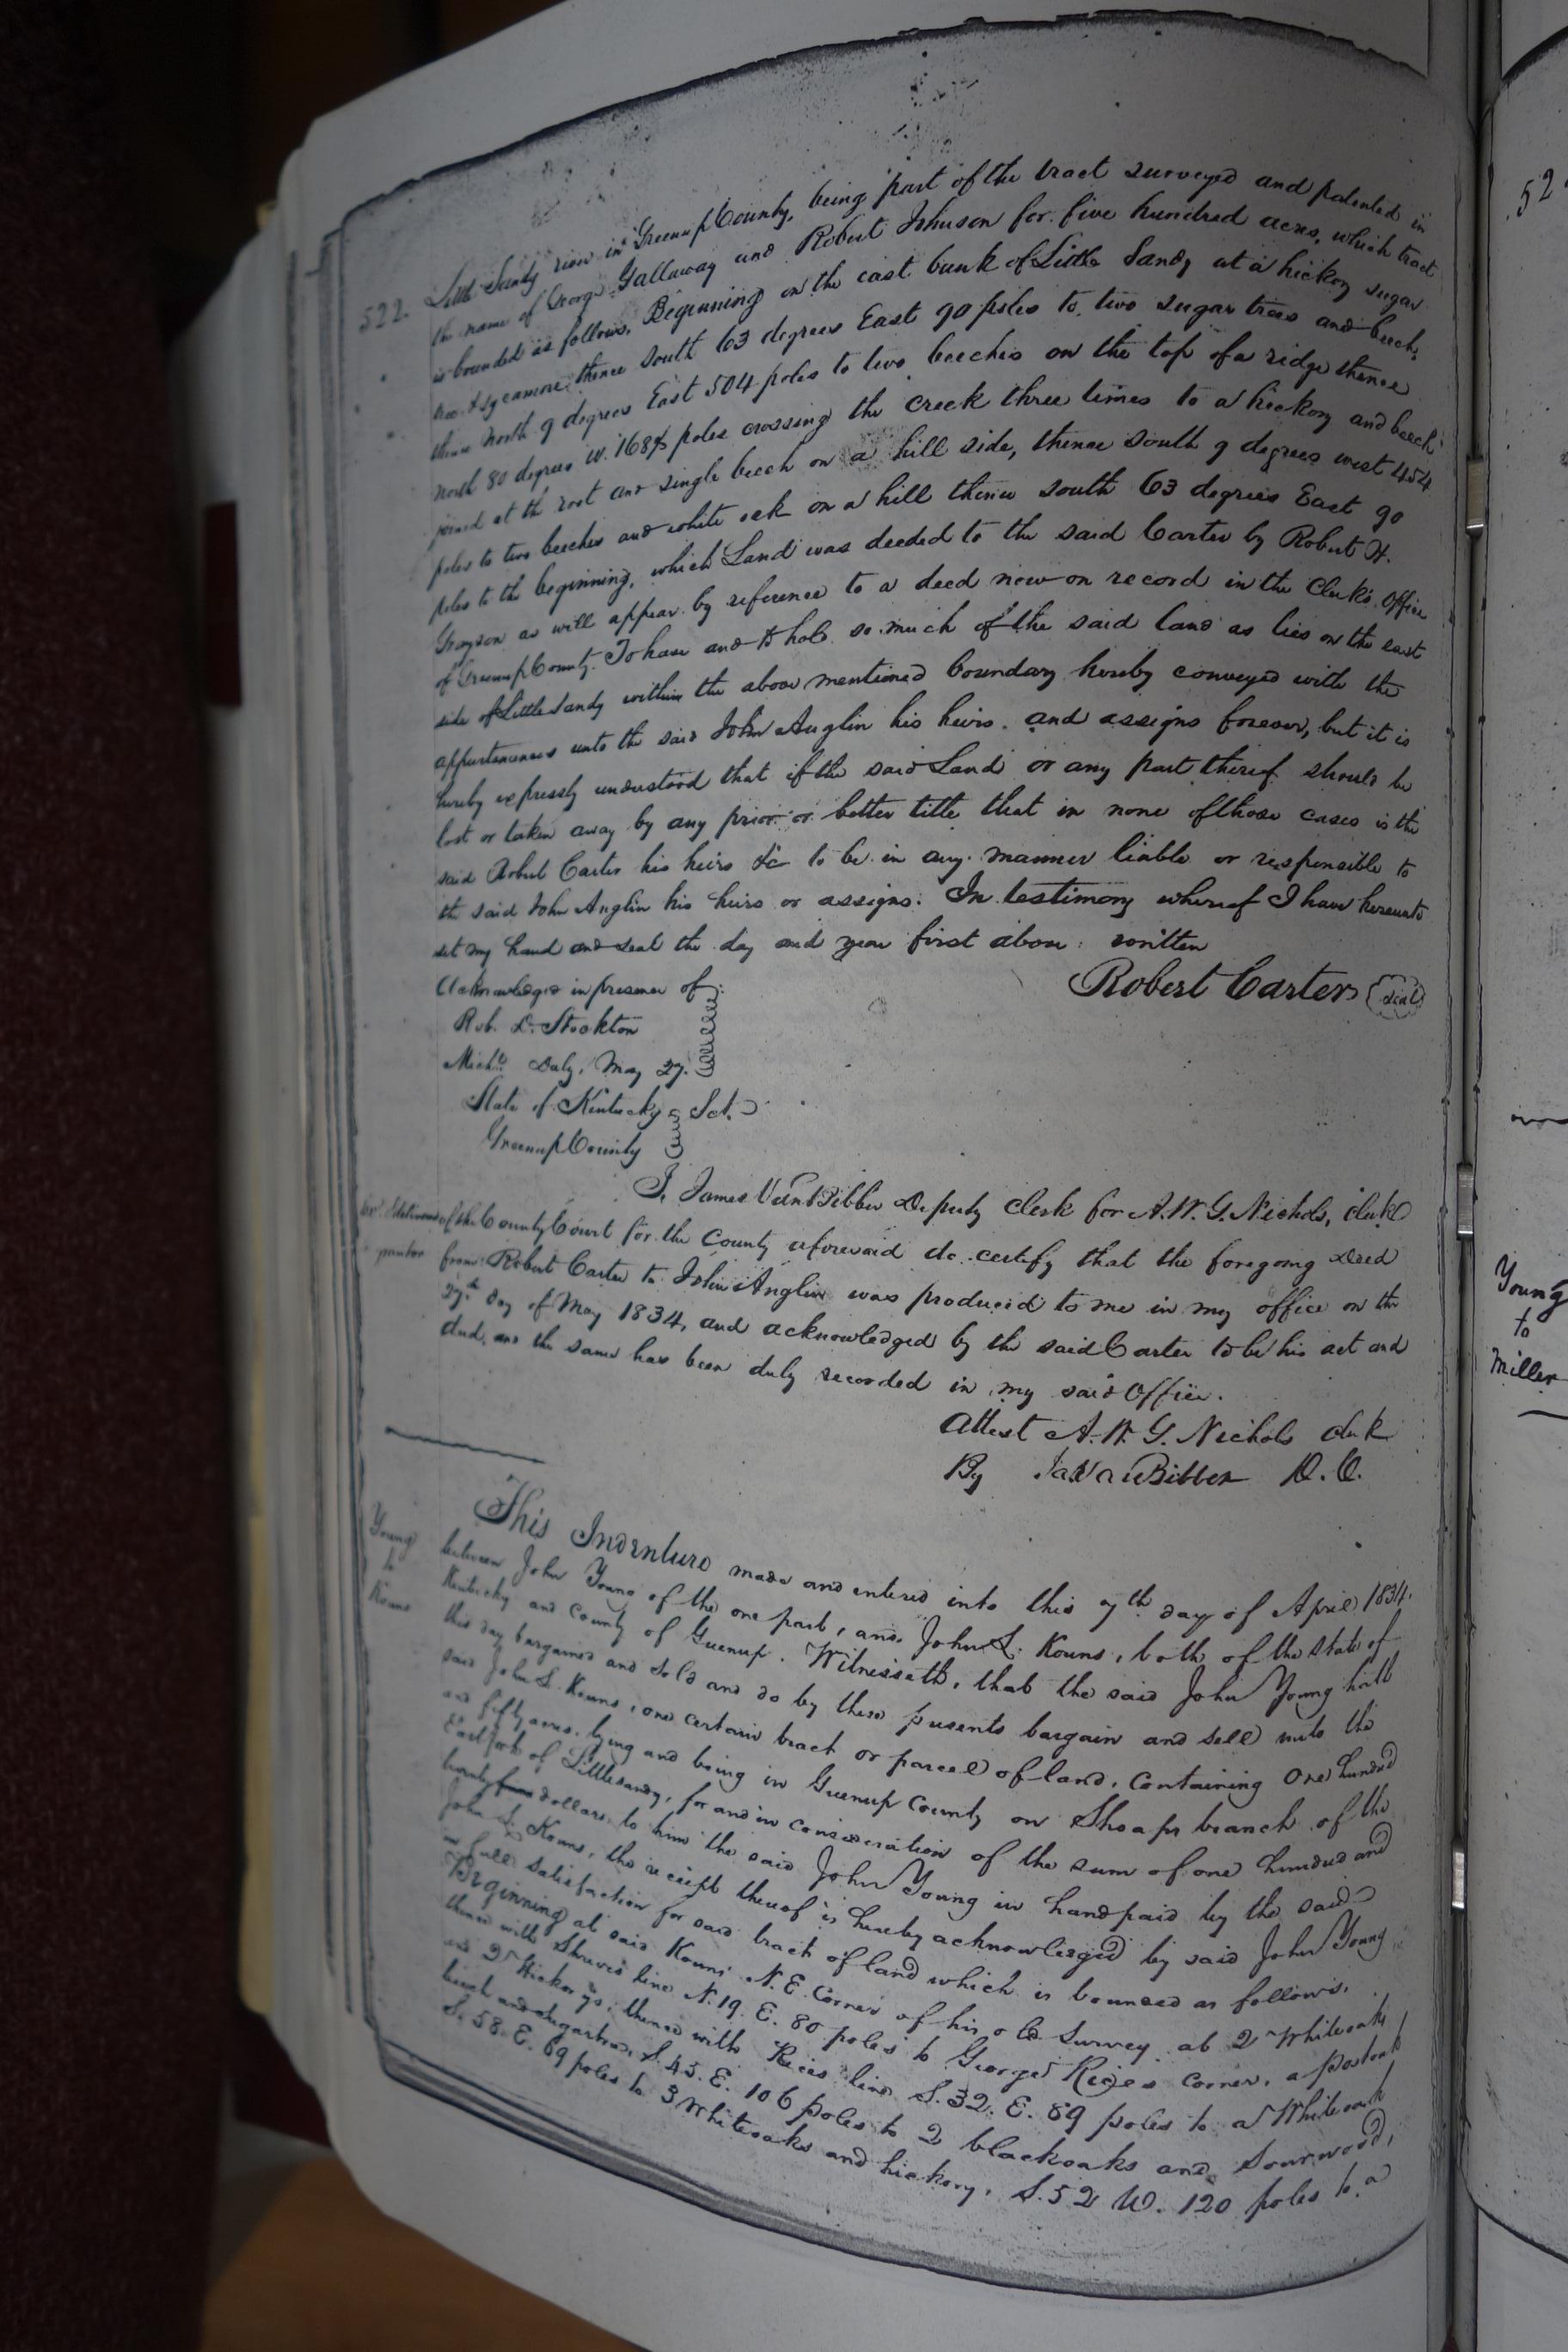 522.
Little Sandy river in Greenup County, being part of the tract surveyed and patented in
the name of George Gallaway and Robert Johnson for five hundred acres, which tract
is bounded as follows, Beginning on the east bank of Little Sandy at a hickory sugar
tree & sycamore, thence south 63 degrees East 90 poles to two sugar trees and beech,
thence North 9 degrees East 504 poles to two beeches on the top of a ridge thence
North 80 degrees W. 168 poles crossing the creek three times to a hickory and beech
joined at the root and single beech on a hill side, thence south 9 degrees west 454
poles to two beeches and white oak on a hill thence south 63 degrees East 90
poles to the beginning, which Land was deeded to the said Carter by Robert H.
Grayson as will appear by reference to a deed now on record in the Clerk's office
of Greenup County. To have and to hold so much of the said land as lies on the east
side of Little Sandy within the above mentioned boundary hereby conveyed with the
appurtenances unto the said John Anglin his heirs and assigns forever, but it is
hereby expressly understood that if the said Land or any part thereof should be
lost or taken away by any prior or better title that in none of those cases is the
said Robert Carter his heirs &c to be in any manner liable or responsible to
the said John Anglin his heirs or assigns. In testimony whereof I have hereunto
set my hand and seal the day and year first above written
Robert Carter seal
Acknowledged in presence of
Rob. D. Stockton
Michl. Duly, May 27.
State of Kentucky Sct.
Greenup County
I, James VanBibber Deputy clerk for A.W.G. Nichols, clerk
of the County Court for the County aforesaid do certify that the foregoing Deed
from Robert Carter to John Anglin was produced to me in my office on the
27th day of May 1834, and acknowledged by the said Carter to be his act and
deed, and the same has been duly recorded in my said Office.
Attest A.W.G. Nichols clerk
By Ja VanBibber D.C.
Young
to
Kouns
This Indenture made and entered into this 7th day of April 1834.
between John Young of the one part, and John S. Kouns, both of the State of
Kentucky and County of Greenup. Witnesseth, that the said John Young hath
this day bargained and sold and do by these presents bargain and sell unto the
said John S. Kouns, one certain tract or parcel of land, containing One hundred
and fifty acres. lying and being in Greenup County on Shoaps branch of the
East fork of Littlesandy, for and in consideration of the sum of one hundred and
twenty dollars, to him the said John Young in hand paid by the said
John S. Kouns, the receipt thereof is hereby acknowledged by said John Young
in full satisfaction for said tract of land which is bounded as follows,
Beginning at said Kouns N.E. Corner of his old Survey at 2 Whiteoaks
thence with Shreves line N. 19. E. 80 poles to George Rices corner, a postoak
and 2 Hickorys, thence with Rices line S. 32. E. 89 poles to a Whiteoak
beech and sugartree, S. 45. E. 106 poles to 2 blackoaks and Sourwood,
S. 58. E. 69 poles to 3 Whiteoaks and hickory, S. 52 W. 120 poles to a
Young
to
Miller